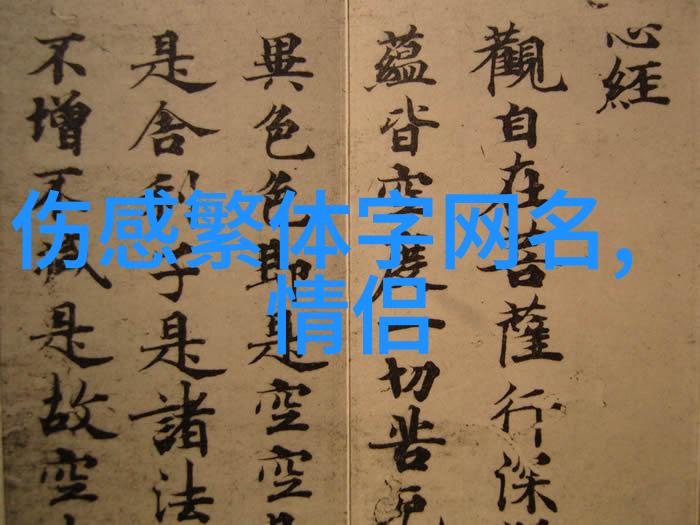 伤感繁体字网名,
情侣
心經
觀自在菩薩行深
蘊皆空度一切苦厄
異色色即是空空
是舍利子是諸法
不增不減是故空